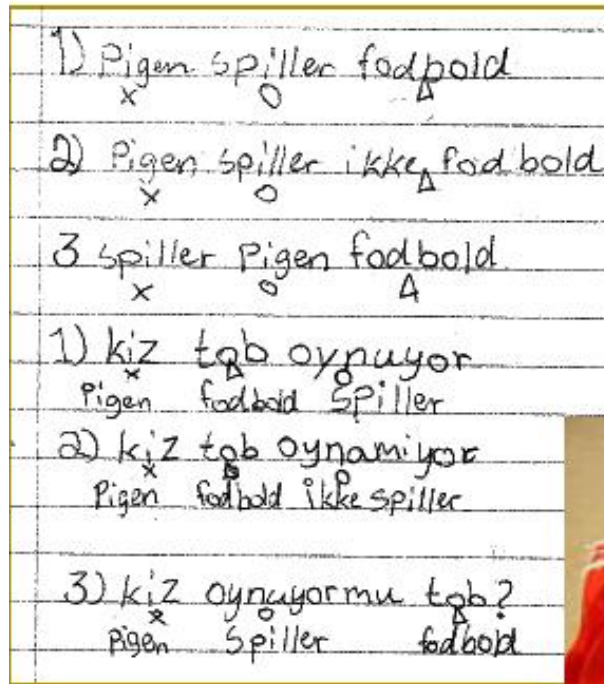 1) Pigen spiller fodbold
2) Pigen spiller ikke fodbold
3 spiller Pigen fodbold
1) kiz tob oynuyor
Pigen fodbold spiller
2) kiz tob oynamiyor
Pigen fodbold ikke spiller
3) kiz oynuyormu tob?
pigen spiller fodbold